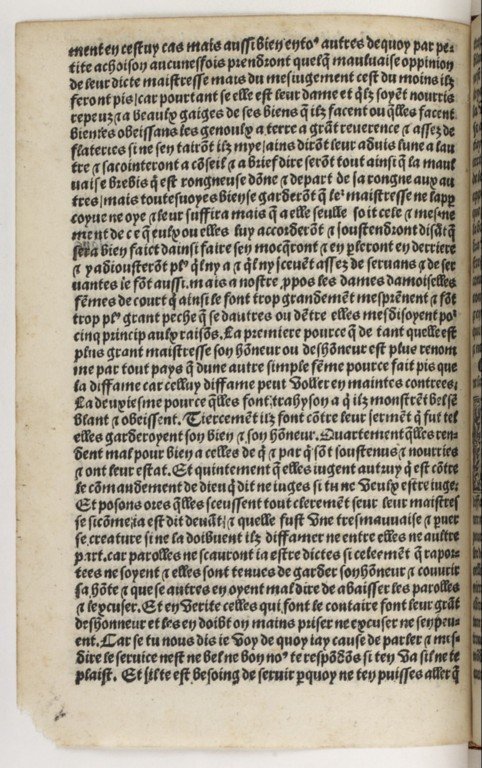 ment en cestuy cas mais aussi bien en to⁹ autres de quoy par pe⸗
tite achoison aucunesfois prendront quelq̃ mauluaise oppinion
de leur dicte maistresse mais du mesiugement cest du moins ilz
feront pis/car pourtant se elle est leur dame et q̃lz soyẽt nourris
repeuz ⁊ a beaulx gaiges de ses biens q̃ ilz facent ou q̃lles facent
bien les obeissans les genoulx a terre a grãt reuerence ⁊ assez de
flateries si ne sen tairõt ilz mye/ains dirõt leur aduis lune a lau
tre ⁊ sacointeront a cõseil ⁊ a brief dire serõt tout ainsi q̃ la maul
uaise brebis q̃ est rongneuse dõne ⁊ depart de sa rongne aux au
tres/mais toutesuoyes bien se garderõt q̃ le² maistresse ne lapꝑ
coyue ne oye ⁊ leur suffira mais q̃ a elle seulle soit cele ⁊ mesme
ment de ce q̃ eulx ou elles luy accorderõt ⁊ soustendront disãt q̃
sera bien faict dainsi faire sen mocq̃ront ⁊ en pleront en derriere
⁊ y adiousterõt pl⁹ q̃l ny a ⁊ q̃l ny sceuẽt assez de seruans ⁊ de ser
uantes le fõt aussi. mais a nostre ꝓpos les dames damoiselles
fẽmes de court q̃ ainsi le font trop grandemẽt mesprẽnent ⁊ fõt
trop pl⁹ grant peche q̃ se dautres ou dẽtre elles mesdisoyent po²
cinq princip aulx raisõs. La premiere pource q̃ de tant quelle est
plus grant maistresse son hõneur ou deshõneur est plus renom
me par tout pays q̃ dune autre simple fẽme pource fait pis que
la diffame car celluy diffame peut voller en maintes contrees.
La deuxiesme pource q̃lles font trahyson a q̃ ilz monstrẽt bel sẽ
blant ⁊ obeissent. Tiercemẽt ilz font cõtre leur sermẽt q̃ fut tel
elles garderoyent son bien ⁊ son hõneur. Quartement q̃lles ren⸗
dent mal pour bien a celles de q̃ ⁊ par q̃ sõt soustenus ⁊ nourries
⁊ ont leur estat. Et quintement q̃ elles iugent autruy q̃ est cõtre
le cõmandement de dieu q̃ dit ne iuges si tu ne veulx estre iuge.
Et posons ores q̃lles sceussent tout clerement seur leur maistres
se sicõme ia est dit deuãt/⁊ quelle fust vne tres mauuaise ⁊ ꝑuer
se creature si ne la doibuent ilz diffamer ne entre elles ne aultre
part. car parolles ne scauront ia estre dictes si celeemẽt q̃ rapor⸗
tees ne soyent ⁊ elles sont tenues de garder son hõneur ⁊ couurir
sa hõte ⁊ que se autres en oyent mal dire de abaisser les parolles
⁊ lexcuser. Et en verite celles qui font le contaire font leur grãt
deshonneur et les en doibt on mains priser ne excuser ne sen peu⸗
ent. Car se tu nous dis ie voy de quoy iay cause de parler ⁊ mes⸗
dire le seruice nest ne bel ne bon no⁹ te respõdõs si ten va sil ne te
plaist. Et sil te est besoing de seruir ꝑquoy ne ten puisses aller q̃